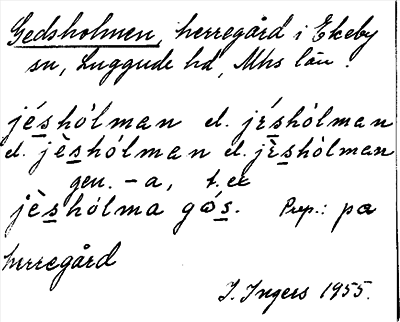 Gedsholmen, herregård i Ekeby
sn, Luggude hd, Mhs län.
jéshólman el. jéshólman
el. jèshólman el. jèshòlman
gen. -a, t.ex
jèshólma gås. Prep.: pa
herregård
I. Ingers 1955.